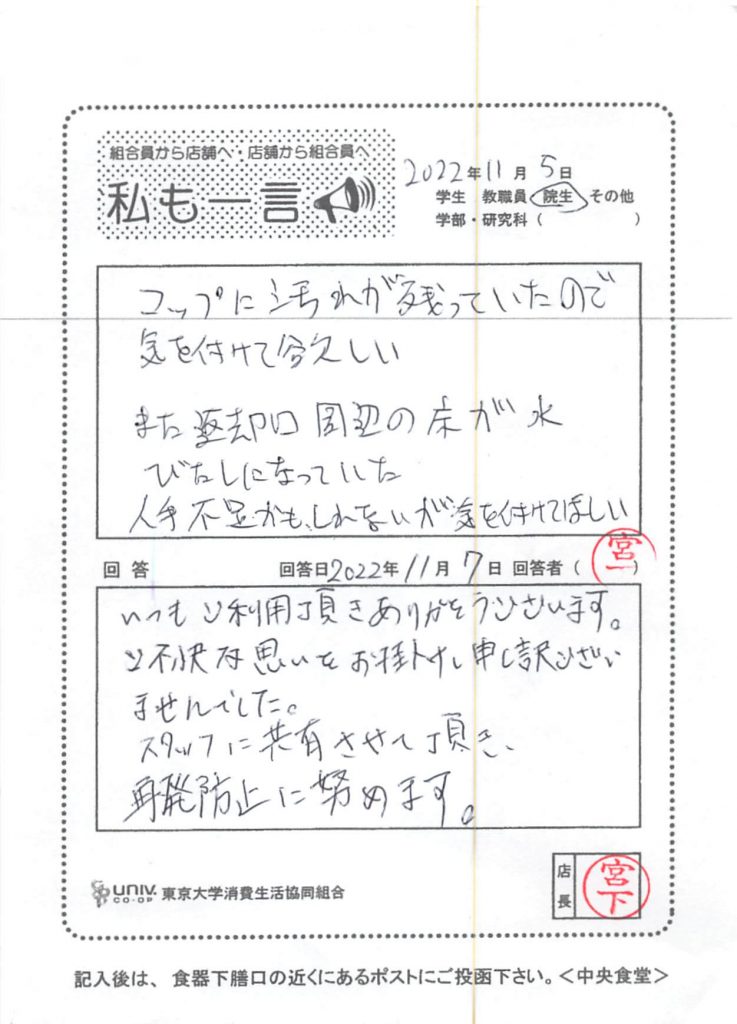 組合員から店舗へ・店舗から組合員へ
私も一言
2022年11月5日
学生 教職員 院生 その他
学部・研究科( )
コップに汚れが残っていたので
気を付けて欲しい
また返却口周辺の床が水
びたしになっていた
人手不足かもしれないが気を付けてほしい
回答 回答日2022年11月7日 回答者( )
宮一
いつもご利用頂きありがとうございます。
ご不快な思いをお掛けし申し訳ござい
ませんでした。
スタッフに共有させて頂き、
再発防止に努めます。
店長
宮下
UNIV. CO-OP 東京大学消費生活協同組合
記入後は、食器下膳口の近くにあるポストにご投函下さい。<中央食堂>